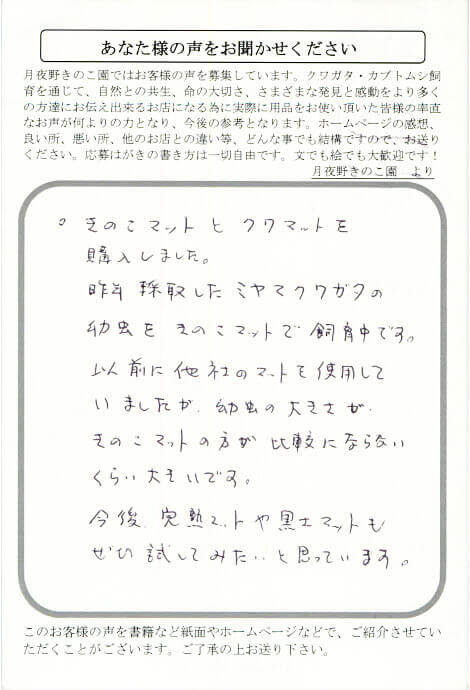 あなた様の声をお聞かせください
月夜野きのこ園ではお客様の声を募集しています。クワガタ・カブトムシ飼
育を通じて、自然との共生、命の大切さ、さまざまな発見と感動をより多く
の方達にお伝え出来るお店になる為に実際に用品をお使い頂いた皆様の率直
なお声が何よりの力となり、今後の参考となります。ホームページの感想、
良い所、悪い所、他のお店との違い等、どんな事でも結構ですので、お送り
ください。応募はがきの書き方は一切自由です。文でも絵でも大歓迎です！
月夜野きのこ園　より
。きのこマットとクワマットを
購入しました。
昨年採取したミヤマクワガタの
幼虫をきのこマットで飼育中です。
以前に他社のマットを使用して
いましたが、幼虫の大きさが、
きのこマットの方が比較にならない
くらい大きいです。
今後、完熟マットや黒土マットも
ぜひ試してみたいと思っています。
このお客様の声を書籍など紙面やホームページなどで、ご紹介させてい
ただくことがございます。ご了承の上お送り下さい。